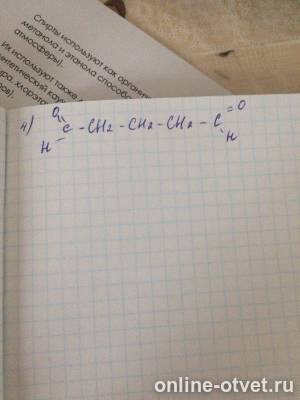 Спирты используют как органи
метанола и этанола способс
атмосферы).
Их используют также
нтетический кау
ра, хлорэта
ров).
4) O=C(H)-CH2-CH2-CH2-C(H)=O
online-otvet.ru